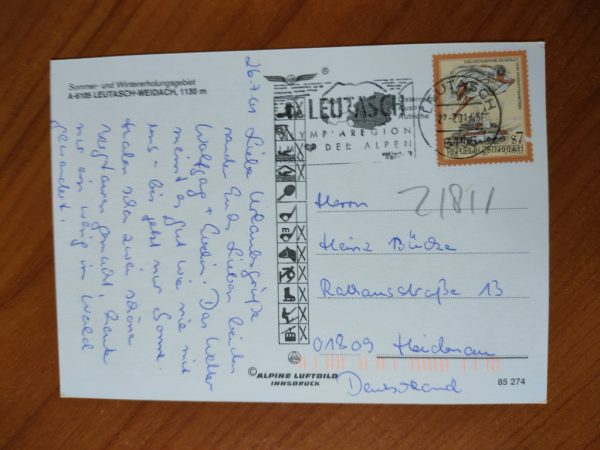 Sommer- und Wintererholungsgebiet
A-6105 LEUTASCH-WEIDACH, 1130 m
26.7.01 Liebe Urlaubsgrüße
senden Euch Lieben beiden
Wolfgang +
Das Wetter
meint es gut wie nie mit
uns - bis jetzt nur Sonne.
haben schon zwei schöne
Bergtouren gemacht, heute
nur ein wenig im Wald
gewandert.
®
LEUTASCH
OLYMPIAREGION
DER ALPEN
LEUTASCH
27-7.01
6105
REPUBLIK ÖSTERREICH
S7
2/8/1
Herrn
Heinz Bücke
Rathausstraße 13
01809 Heidenau
Deutschland
© ALPINE LUFTBILD
INNSBRUCK
85 274